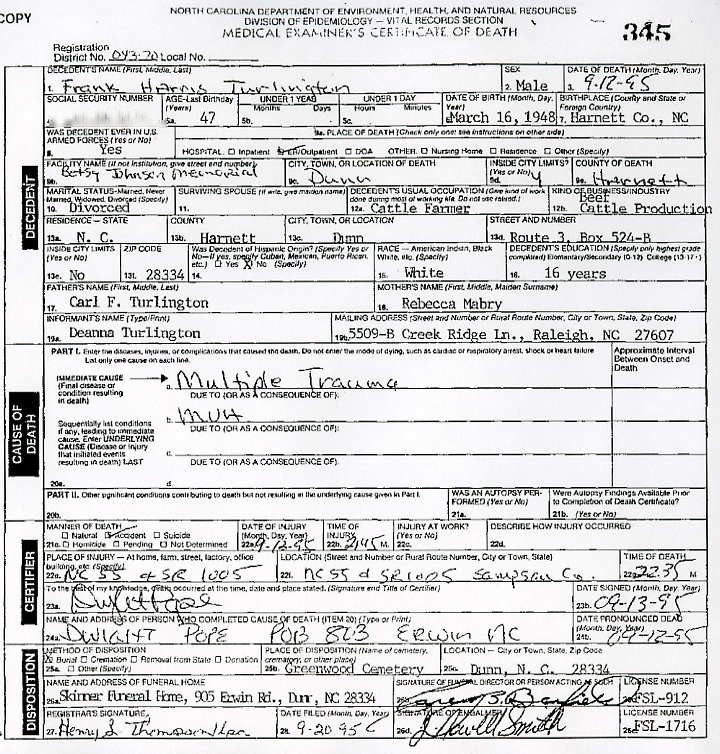 COPY
NORTH CAROLINA DEPARTMENT OF ENVIRONMENT, HEALTH, AND NATURAL RESOURCES
DIVISION OF EPIDEMIOLOGY – VITAL RECORDS SECTION
MEDICAL EXAMINER'S CERTIFICATE OF DEATH
345
Registration
District No. 043-70 Local No.
DECEDENT
DECEDENT'S NAME (First, Middle, Last) SEX DATE OF DEATH (Month, Day, Year)
1. Frank Harris Turlington 2. Male 3. 9-12-95
SOCIAL SECURITY NUMBER AGE-Last Birthday (Years) UNDER 1 YEAR UNDER 1 DAY DATE OF BIRTH (Month, Day, Year) BIRTHPLACE (County and State or Foreign Country)
5a. 47 5b. Months Days 5c. Hours Minutes 6. March 16, 1948 7. Harnett Co., NC
WAS DECEDENT EVER IN U.S. ARMED FORCES? (Yes or No) 9a. PLACE OF DEATH (Check only one: see instructions on other side)
8. Yes HOSPITAL: Inpatient ER/Outpatient DOA OTHER: Nursing Home Residence Other (Specify)
FACILITY NAME (If not institution, give street and number) CITY, TOWN, OR LOCATION OF DEATH INSIDE CITY LIMITS? (Yes or No) COUNTY OF DEATH
9b. Betsy Johnson Memorial 9c. Dunn 9d. Y 9e. Harnett
MARITAL STATUS-Married, Never Married, Widowed, Divorced (Specify) SURVIVING SPOUSE (If wife, give maiden name) DECEDENT'S USUAL OCCUPATION (Give kind of work done during most of working life. Do not use retired.) KIND OF BUSINESS/INDUSTRY
10. Divorced 11. 12a. Cattle Farmer 12b. Beef Cattle Production
RESIDENCE – STATE COUNTY CITY, TOWN, OR LOCATION STREET AND NUMBER
13a. N. C. 13b. Harnett 13c. Dunn 13d. Route 3, Box 524-B
INSIDE CITY LIMITS (Yes or No) ZIP CODE Was Decedent of Hispanic Origin? (Specify Yes or No–If yes, specify Cuban, Mexican, Puerto Rican, etc.) Yes No (Specify) RACE – American Indian, Black White, etc. (Specify) DECEDENT'S EDUCATION (Specify only highest grade completed) Elementary/Secondary (0-12) College (13-17+)
13e. No 13f. 28334 14. 15. White 16. 16 years
FATHER'S NAME (First, Middle, Last) MOTHER'S NAME (First, Middle, Maiden Surname)
17. Carl F. Turlington 18. Rebecca Mabry
INFORMANT'S NAME (Type/Print) MAILING ADDRESS (Street and Number or Rural Route Number, City or Town, State, Zip Code)
19a. Deanna Turlington 19b. 5509-B Creek Ridge Ln., Raleigh, NC 27607
CAUSE OF DEATH
PART I. Enter the diseases, injuries, or complications that caused the death. Do not enter the mode of dying, such as cardiac or respiratory arrest, shock or heart failure
List only one cause on each line.
Approximate Interval Between Onset and Death
IMMEDIATE CAUSE (Final disease or condition resulting in death)
a. Multiple Trauma
DUE TO (OR AS A CONSEQUENCE OF):
b. MVA
DUE TO (OR AS A CONSEQUENCE OF):
Sequentially list conditions if any, leading to immediate cause. Enter UNDERLYING CAUSE (Disease or injury that initiated events resulting in death) LAST
c.
DUE TO (OR AS A CONSEQUENCE OF):
20a. d.
PART II. Other significant conditions contributing to death but not resulting in the underlying cause given in Part I. WAS AN AUTOPSY PERFORMED (Yes or No) Were Autopsy Findings Available Prior to Completion of Death Certificate?
20b. 21a. 21b. (Yes or No)
CERTIFIER
MANNER OF DEATH DATE OF INJURY (Month, Day, Year) TIME OF INJURY INJURY AT WORK? (Yes or No) DESCRIBE HOW INJURY OCCURRED
Natural Accident Suicide
21c. Homicide Pending Not Determined 22a. 9-12-95 22b. 2145 M 22c. 22d.
PLACE OF INJURY – At home, farm, street, factory, office building, etc. (Specify) LOCATION (Street and Number or Rural Route Number, City or Town, State) TIME OF DEATH
22e. NC 55 & SR 1005 22f. NC 55 & SR 1005 Sampson Co. 22g. 2235 M
To the best of my knowledge, death occurred at the time, date and place stated. (Signature and Title of Certifier) DATE SIGNED (Month, Day, Year)
23a. 23b. 09-13-95
NAME AND ADDRESS OF PERSON WHO COMPLETED CAUSE OF DEATH (ITEM 20) (Type or Print) DATE PRONOUNCED DEAD (Month, Day, Year)
24a. DWIGHT POPE POB 873 ERWIN NC 24b. 09-12-95
DISPOSITION
METHOD OF DISPOSITION PLACE OF DISPOSITION (Name of cemetery, crematory, or other place) LOCATION – City or Town, State, Zip Code
Burial Cremation Removal from State Donation
25a. Other (Specify) 25b. Greenwood Cemetery 25c. Dunn, N. C. 28334
NAME AND ADDRESS OF FUNERAL HOME SIGNATURE OF FUNERAL DIRECTOR OR PERSON ACTING AS SUCH LICENSE NUMBER
26a. Skinner Funeral Home, 905 Erwin Rd., Dunn, NC 28334 FSL-912
REGISTRAR'S SIGNATURE DATE FILED (Month, Day, Year) SIGNATURE OF EMBALMER LICENSE NUMBER
27. Henry 28. 9-20-95 26d. Howell Smith 26e. FSL-1716